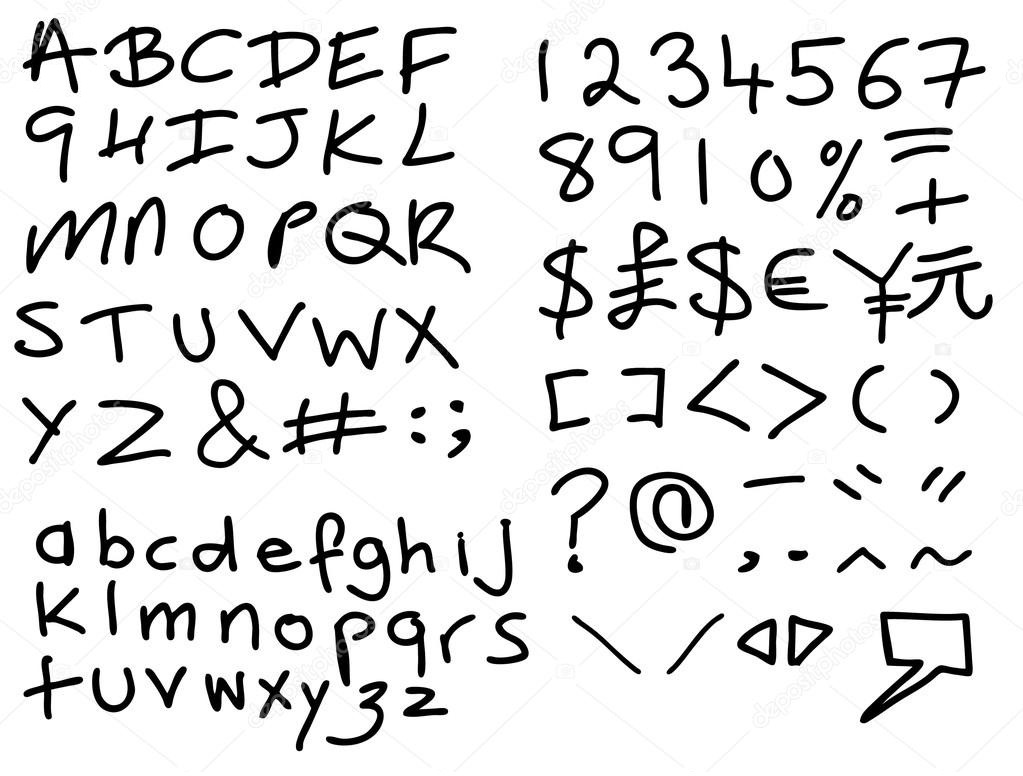 A B C D E F
G H I J K L
M N O P Q R
S T U V W X
Y Z & # : ;
a b c d e f g h i j
k l m n o p q r s
t u v w x y z z
1 2 3 4 5 6 7
8 9 1 0 % = +
$ £ $ € ¥ 元
[ ] < > ( )
? @ — \\ //
, . - ^ ~
\ /
depositphotos